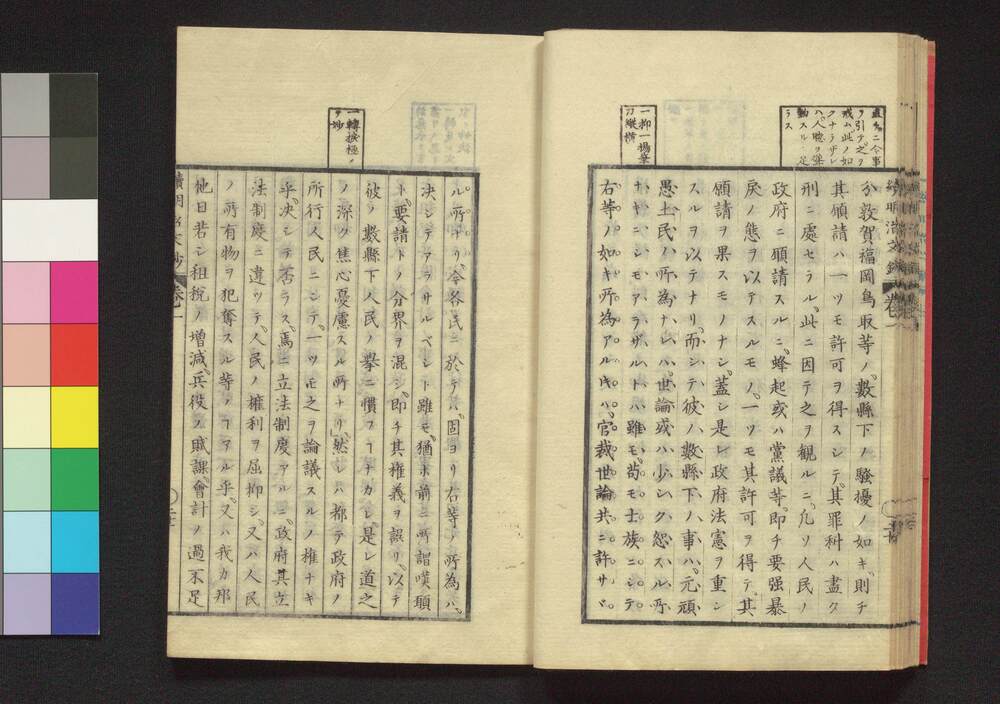 直チニ今事
ヲ引テ之ヲ
戒ム此ノ如
クナラザレ
ハ人聴ヲ
動スル ニ足
ラス
一抑一揚筆
刀縦横
分敦賀福岡鳥取等ノ數縣下ノ騒擾ノ如キ則チ
其願請ハ一ツモ許可ヲ得スシテ其罪科ハ盡ク
刑ニ處セラル此ニ因テ之ヲ観ルニ凡ソ人民ノ
政府ニ願請スルニ蜂起或ハ黨議等即チ要强暴
戻ノ態ヲ以テスルモノ一ツモ其許可ヲ得テ其
願請ヲ果スモノナシ蓋シ是レ政府法憲ヲ重シ
スルヲ以テナリ而シテ彼ノ數縣下ノ事ハ元頑
愚土民ノ所為ナレハ世論或ハ少シク怨スル所
ナキニシモアラザルト雖モ苟モ士族ニシテ
右等ノ如キ所為アルキハ官裁世論共ニ許サヾ
一轉按極メ
ヲ妙
ル所ナリ今各氏ニ於テハ固ヨリ右等ノ所為ハ
決シテアラサルベシト雖モ猶ホ前ニ所謂嘆願
ト要請トノ分界ヲ混シ即チ其権義ヲ誤リ以テ
彼ノ數縣下人民ノ挙ニ慣フコナカレ是レ道之
ノ深ク焦心憂慮スル所ナリ然レハ都テ政府ノ
所行人民ニシテ一ツモ之ヲ論議スルノ権ナキ
乎決シテ否ラス焉ニ立法制度アルニ政府其立
法制度ニ違ヒテ人民ノ権利ヲ屈抑シ又ハ人民
ノ所有物ヲ犯奪スル等ノコアル乎又ハ我カ邦
他日若シ租税ノ増減兵役ノ賦課會計ノ過不足
續明治文鈔 卷一